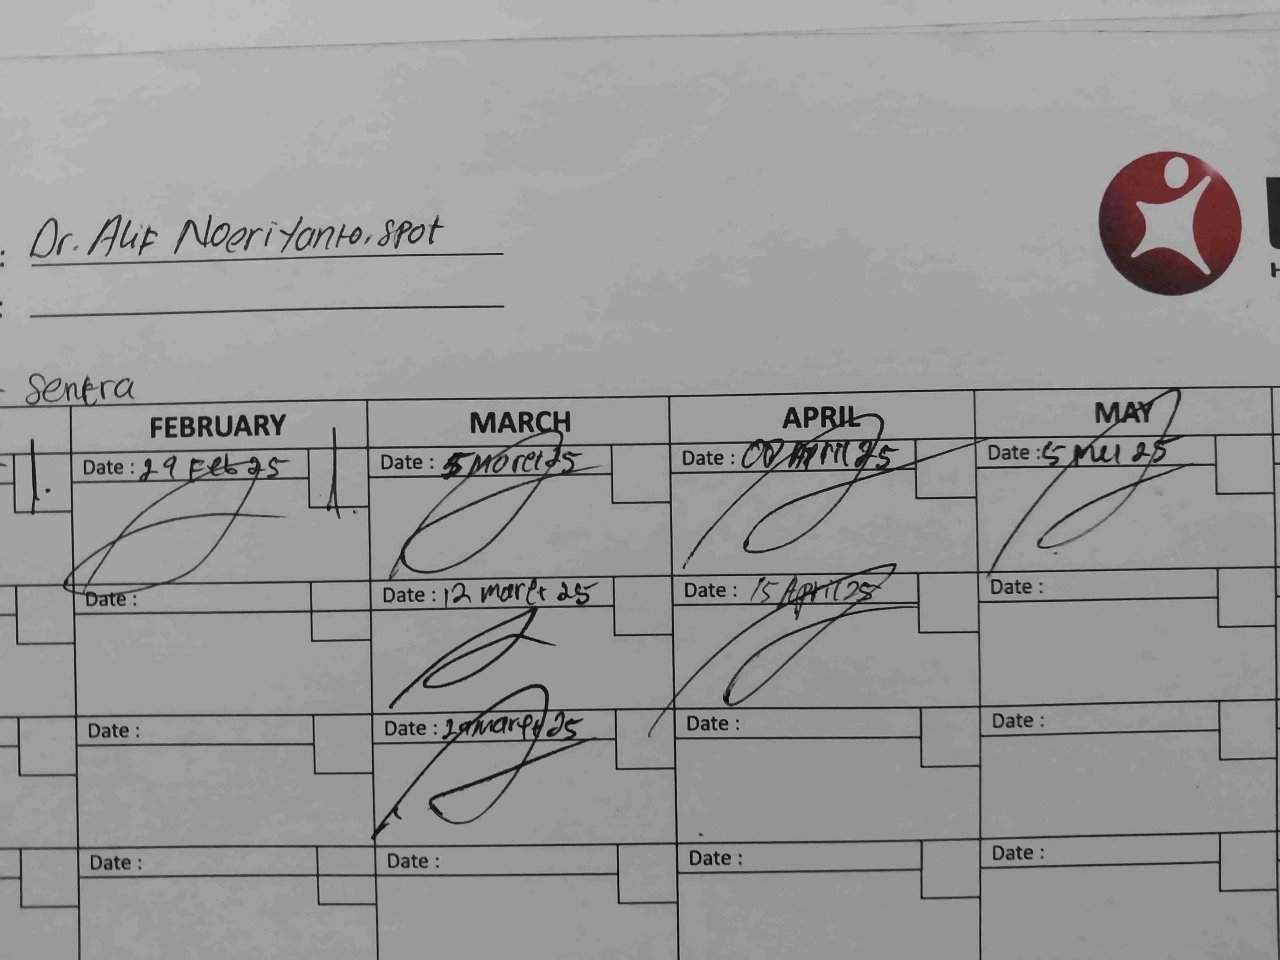 : Dr. Alif Noeriyanto. spot
:
- Sentra
FEBRUARY MARCH APRIL MAY
Date : 29 Feb 25 Date : 5 maret 25 Date : April 25 Date : 5 Mei 25
Date : Date : 12 maret 25 Date : 15 April 25 Date :
Date : Date : maret 25 Date : Date :
Date : Date : Date : Date :